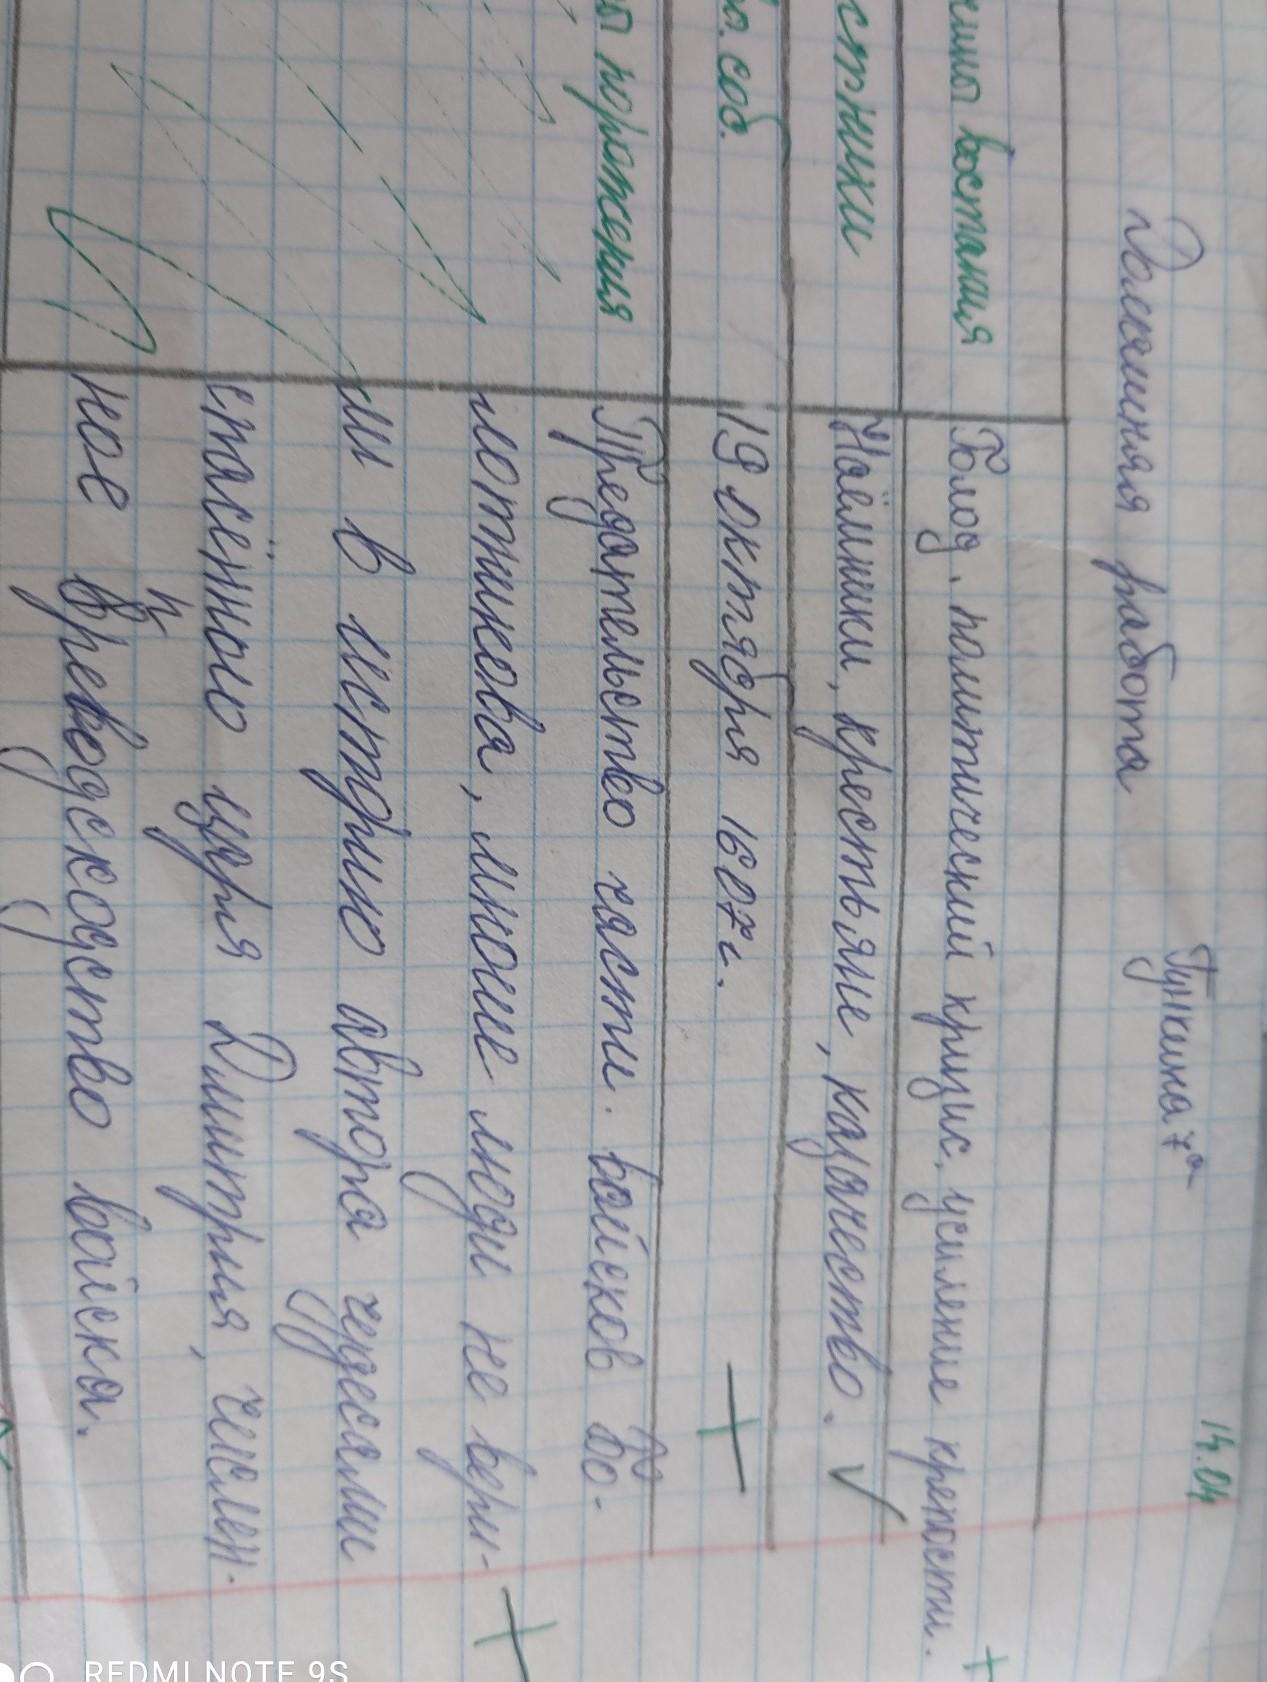 14.04
Домашняя работа Гункина 7а
восстания Голод, политический кризис, усиление крепости.
стники Наёмники, крестьяне, казачество.
соб. 19 октября 1607г.
ы поражения Предательство части войсков Бо-
лотникова, многие люди не вери-
ли в историю автора чудесами
спасённого царя Дмитрия, числен-
ное превосходство войска.
REDMI NOTE 9S